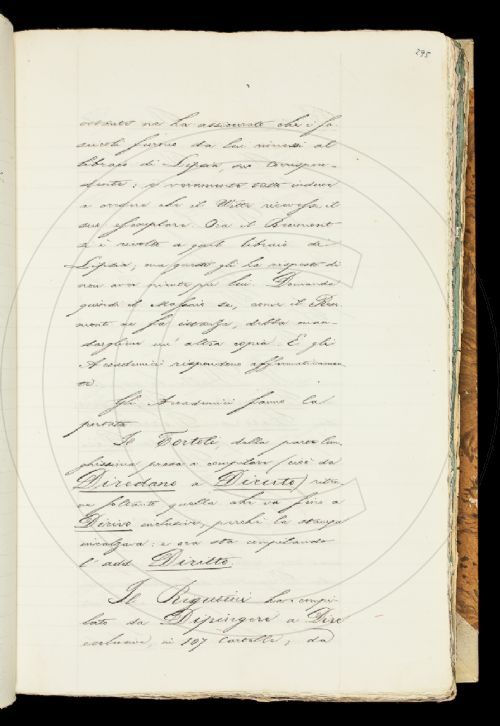 295
ne ha assicurato che i fa-
scicoli furono da lui rimessi al
libraio di Lipsia, suo corrispon-
dente; e veramente tutto induce
a credere che il Witte ricevesse il
suo esemplare. Ora il
si è rivolto a quel libraio di
Lipsia, ma questo gli ha risposto di
non aver niente per lui. Domanda
quindi il Massaro se, come il
ne fa istanza, debba man-
dargliene un' altra copia. E gli
Accademici rispondono affermativamen-
te.
Gli Accademici fanno la
portata.
Il Tortoli, della parte lun-
ghissima presa a compilare (cioè da
Dirodano a Dirutto)
ne soltanto quella che va fino a
Dirivo inclusive, perchè la stampa
incalzava: e ora sta compilando
l' add. Diritto.
Il Rigutini ha compi-
lato da Dipingere a Dire
esclusive, in 197 Cartelle; da